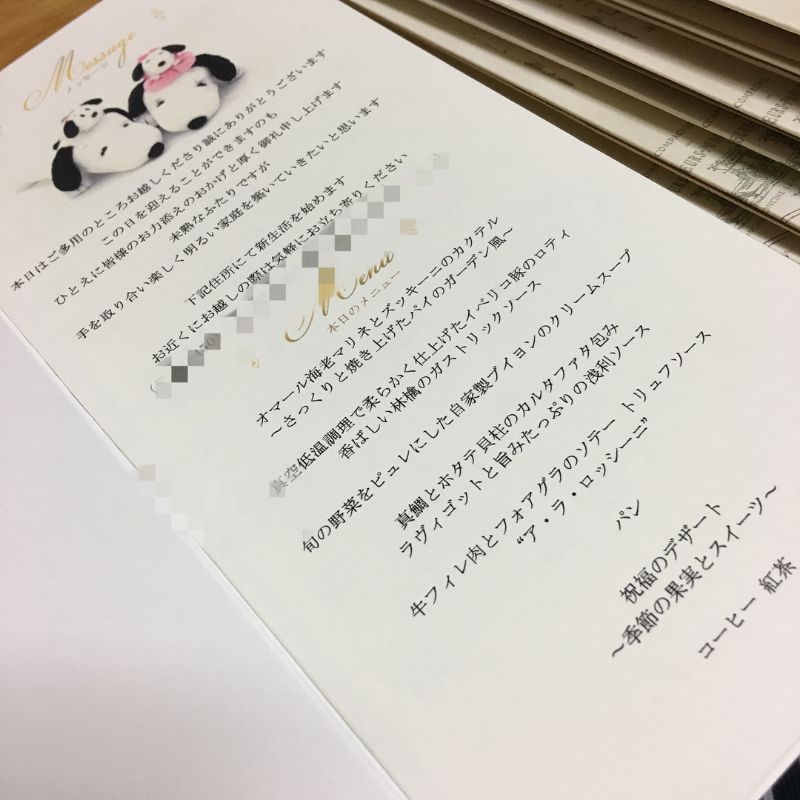 Message
メッセージ
本日はご多用のところお越しくださり誠にありがとうございます
この日を迎えることができますのも
ひとえに皆様のお力添えのおかげと厚く御礼申し上げます
未熟なふたりですが
手を取り合い楽しく明るい家庭を築いていきたいと思います
下記住所にて新生活を始めます
お近くにお越しの際は気軽にお立ち寄りください
Menu
本日のメニュー
オマール海老マリネとズッキーニのカクテル
～さっくりと焼き上げたパイのガーデン風～
真空低温調理で柔らかく仕上げたイベリコ豚のロティ
香ばしい林檎のガストリックソース
旬の野菜をピュレにした自家製ブイヨンのクリームスープ
真鯛とホタテ貝柱のカルタファタ包み
ラヴィゴットと旨みたっぷりの浅利ソース
牛フィレ肉とフォアグラのソテー トリュフソース
“ア・ラ・ロッシーニ”
パン
祝福のデザート
～季節の果実とスイーツ～
コーヒー 紅茶